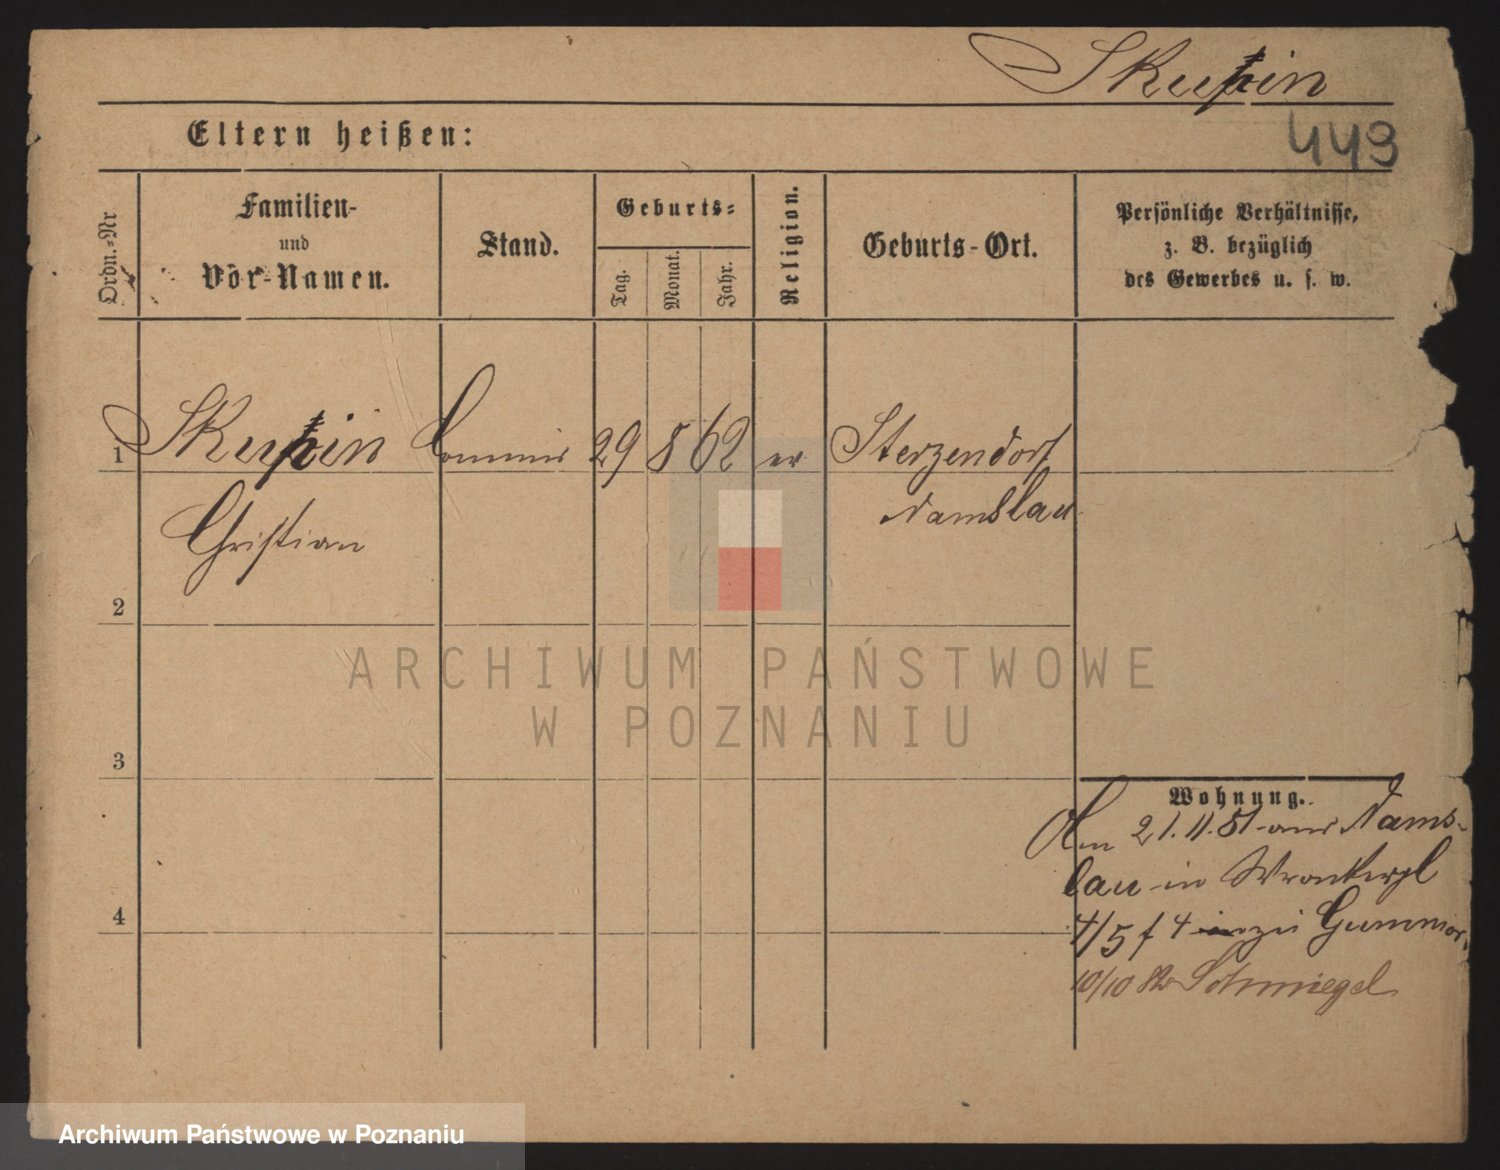 Skupin
449
Eltern heißen:
Ordn.-Nr
Familien-
und
Vor-Namen.
Stand.
Geburts-
Tag.
Monat.
Jahr.
Religion.
Geburts-Ort.
Persönliche Verhältnisse,
z. B. bezüglich
des Gewerbes u. s. w.
1 Skupin Commis 29 8 62 ev Sterzendorf
Christian Namslau
2
3
4
Wohnung.
Am 21.11.81 aus Nams-
lau in Wronkerpl
4/5 f 4 zu Gummior
10/10 82 Schmiegel
ARCHIWUM PAŃSTWOWE
W POZNANIU
Archiwum Państwowe w Poznaniu